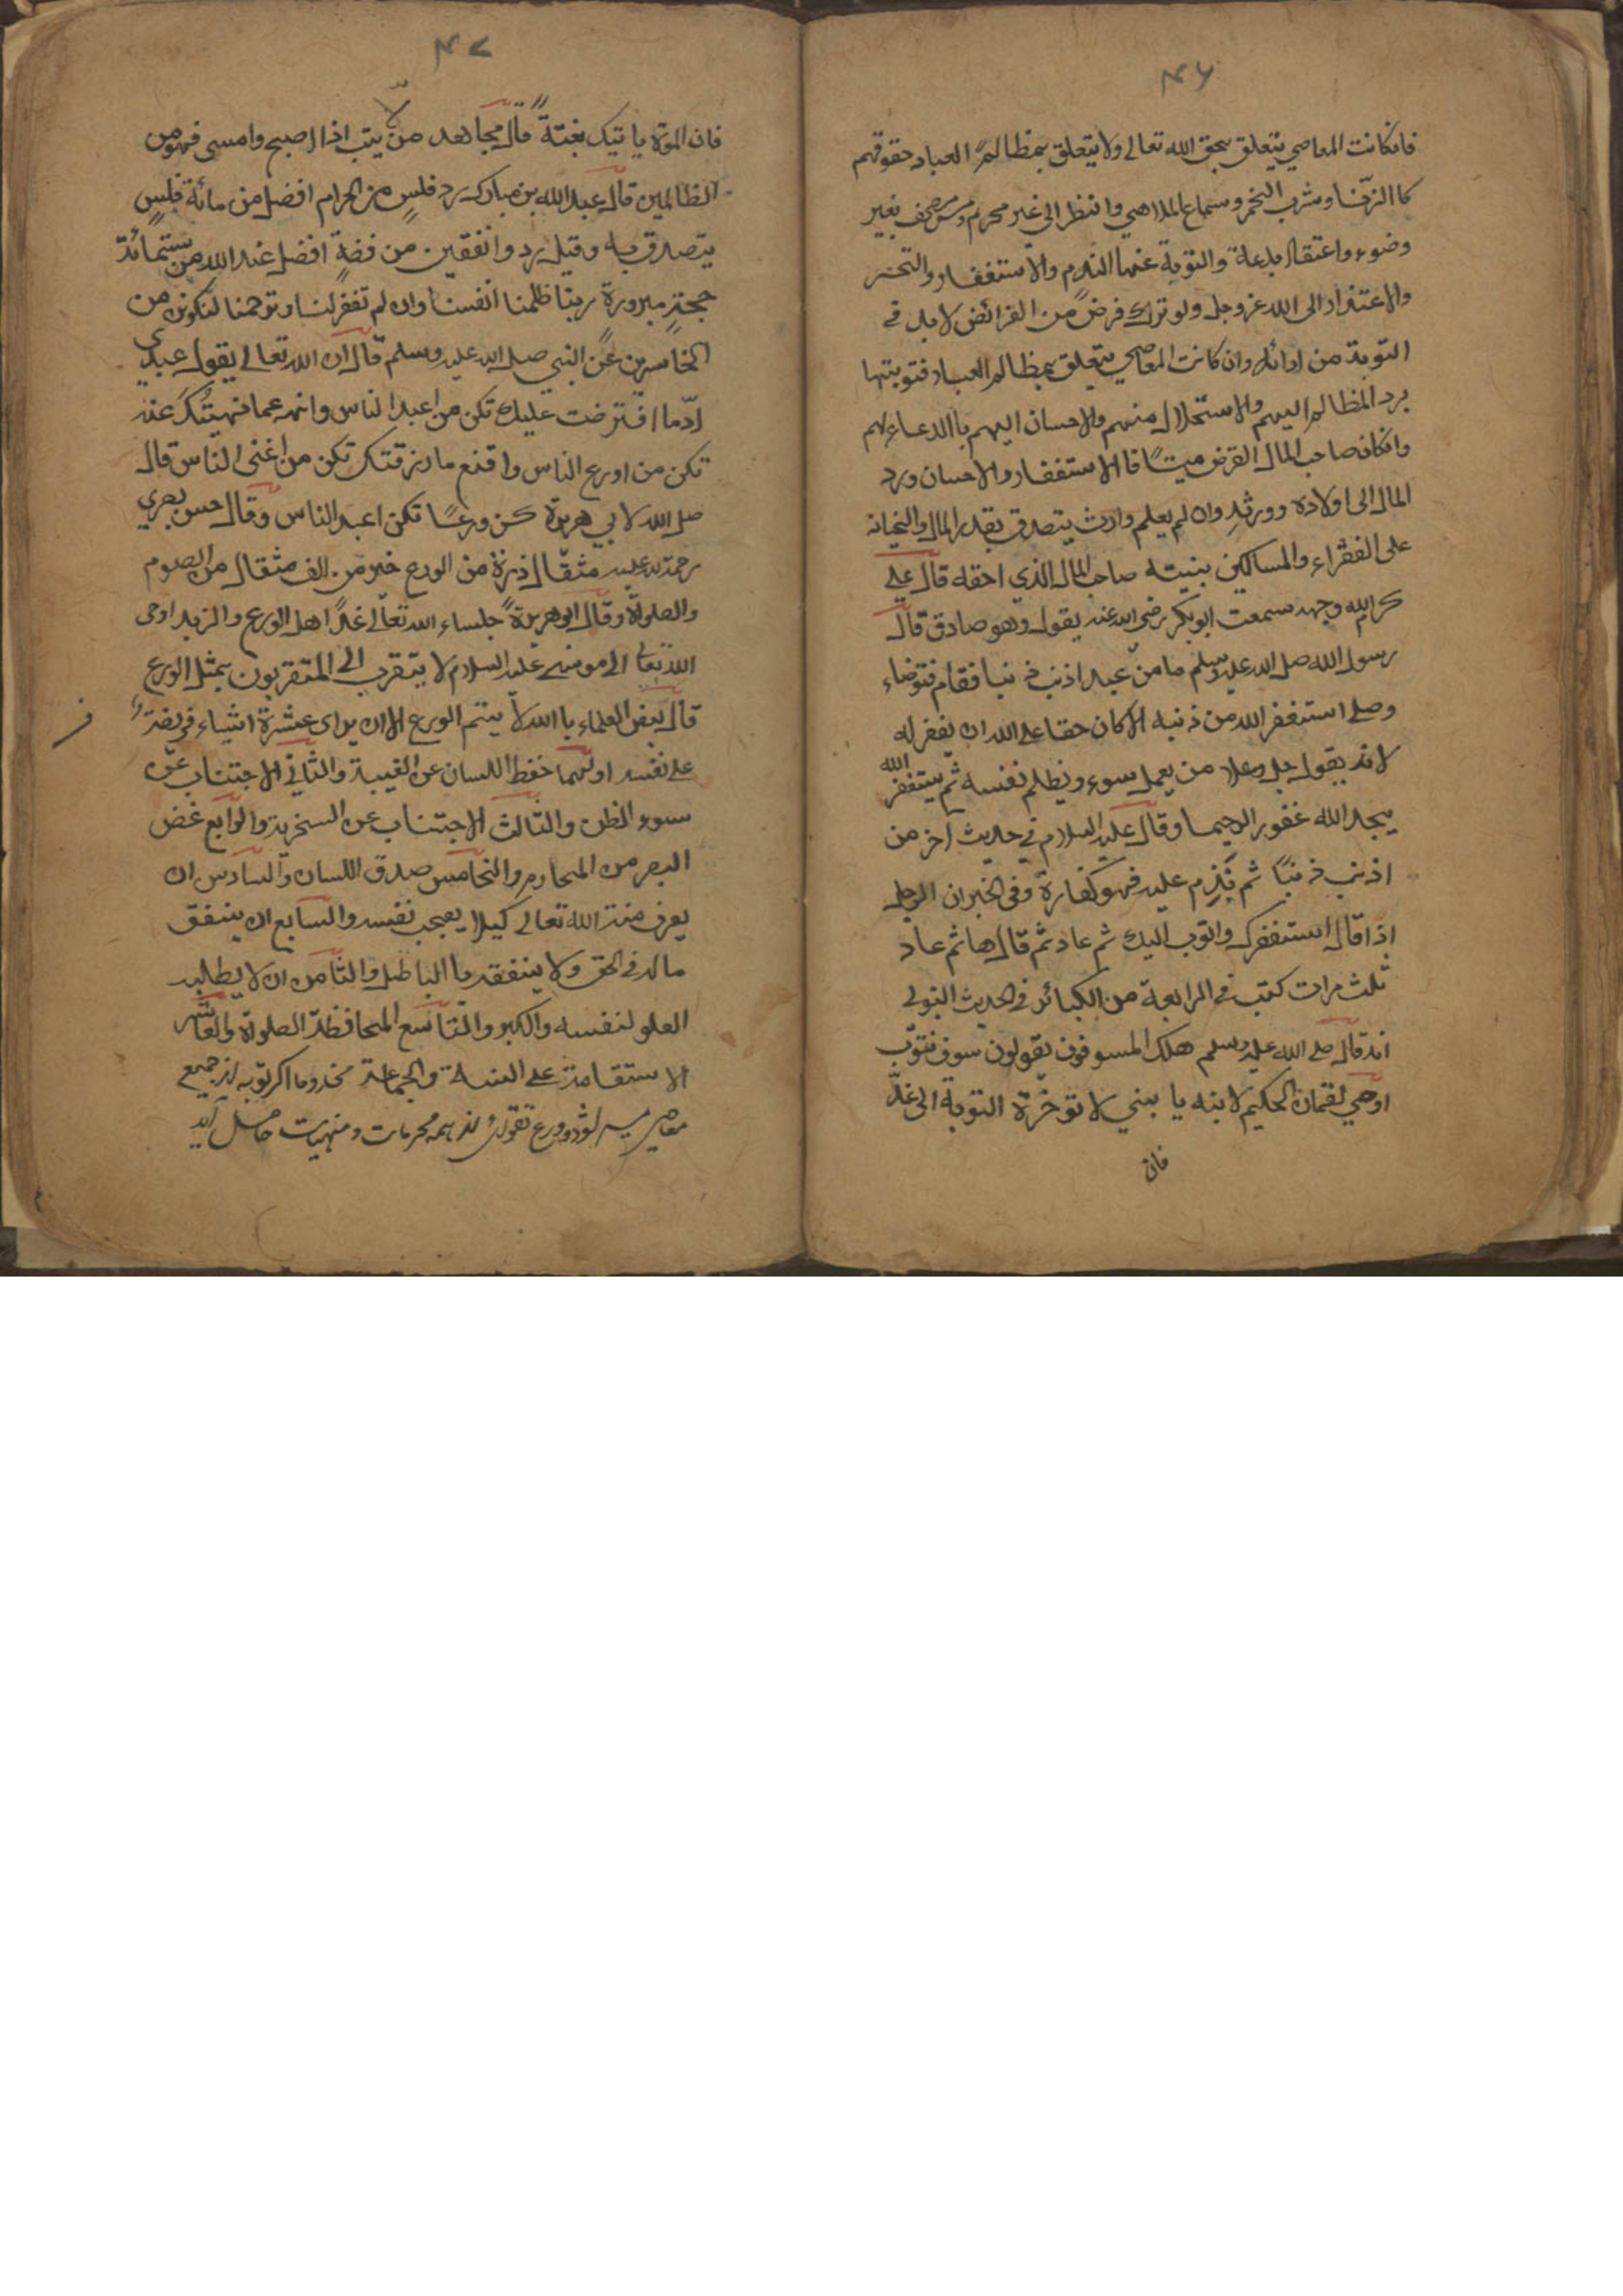 ۴۶
فانكانت المعاصي يتعلق بحق الله تعالى ولا يتعلق بمظالم العباد حقوقهم
كاالزنا وشرب الخمر وسماع الملاهي والنظر الى غير محرم ومس مصحف بغير
وضوء واعتقاد بدعة والتوبة عنها الندم والاستغفار والتحسر
والاعتذار الى الله عز وجل ولو ترك فرض من الفرائض لا بد في
التوبة من ادائه وان كانت المعاصي يتعلق بمظالم العباد فتوبتها
برد المظالم اليهم والاستحلال منهم والاحسان اليهم باالدعاء لهم
وانكان صاحب المال القرض ميتًا فاالاستغفار والاحسان ورد
المال الى اولاده وورثه وان لم يعلم وارث يتصدق بقدر المال والخيانه
على الفقراء والمساكين بنيته صاحب المال الذي احقه قال علي
كرم الله وجهه سمعت ابوبكر رضي الله عنه يقول وهو صادق قال
رسول الله صلى الله عليه وسلم ما من عبد اذنب ذنبا فقام فتوضاء
وصلى استغفر الله من ذنبه الا كان حقا على الله ان يغفر له
لانه يقول جل وعلا من يعمل سوء ويظلم نفسه ثم يستغفر الله
يجد الله غفور الرحيما وقال عليه السلام في حديث اخر من
اذنب ذنبًا ثم نَدِم عليه فهو كفارة وفى الخبر ان الرجل
اذا قال استغفرك واتوب اليك ثم عاد ثم قالها ثم عاد
ثلث مرات كتب في الرابعة من الكبائر في الحديث النبوى
انه قال صلى الله عليه وسلم هلك المسوفون يقولون سوف نتوب
اوصي لقمان الحكيم لابنه يا بني لا توخرة التوبة الى غد
فان
۴۷
فان الموت ياتيك بغتةً قال مجاهد من لا يتب اذا اصبح وامسى فهو من
الظالمين قال عبد الله بن مبارك رد فلس من الحرام افضل من مائة فلس
يتصدق به وقيل رد وانفقين من فضة افضل عند الله من ستمائة
حجة مبرورة ربنا ظلمنا انفسنا وان لم تغفر لنا وترحمنا لنكونن من
الخاسرين عن النبي صلى الله عليه وسلم قال ان الله تعالى يقول عبدي
ادّ ما افترضت عليك تكن من اعبد الناس وانته عما نهيتك عنه
تكن من اورع الناس واقنع ما رزقتك تكن من اغنى الناس قال
صلى الله لابي هريرة كن ورعًا تكن اعبد الناس وقال حسن بصري
رحمة الله عليه مثقال ذرة من الورع خير من الف مثقال من الصوم
والصلوة وقال ابوهريرة جلساء الله تعالى غدًا اهل الورع والزهد اوحى
الله تعالى الى موسى عليه السلام لا يتقرب الى المتقربون بمثل الورع
قال بعض العلماء باالله لا يتم الورع الا ان يراى عشرة اشياء فريضة
على نفسه اولهما حفظ اللسان عن الغيبة والثاني الاجتناب عن
سوء الظن والثالث الاجتناب عن السخرية والرابع غض
البصر من المحارم والخامس صدق اللسان والسادس ان
يعرف منة الله تعالى كيلا يعجب نفسه والسابع ان ينفق
ماله في الحق ولا ينفقه باالباطل والثامن ان لا يطلب
العلو لنفسه والكبر والتاسع المحافظة الصلوة والعاشر
الاستقامة على السنة والجماعة مخدوما اكر توبه از جميع
معاصى ميسر شود وورع تقوى از همه محرمات ومنهيات حاصل آيد